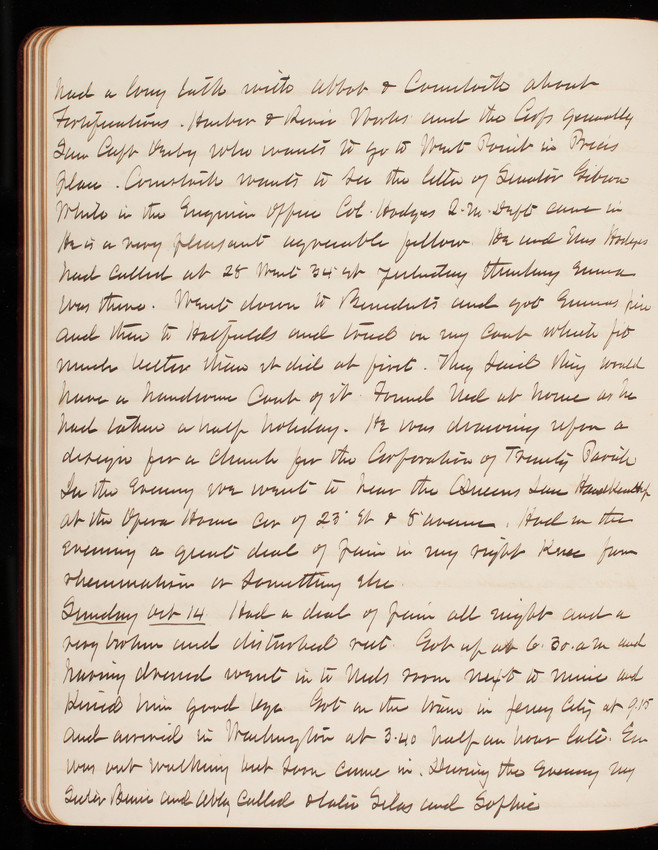 had a long talk with Abbot & Comstock about
Fortifications. Harbor & River Works and the Corps generally
Saw Capt Derby who wants to go to West Point in Prices
place. Comstock wants to see the letter of Senator Gibson
While in the Engineer Office Col. Hodges Q.M. Dept came in
He is a very pleasant agreeable fellow. He and Mrs Hodges
had called at 28 West 34 st yesterday thinking Emma
was there. Went down to Benedicts and got Emmas pin
and then to Hatfields and tried on my coat which fit
much better than it did at first. They said they would
have a handsome Coat of it. Found Ned at home as he
had taken a half holiday. He was drawing upon a
design for a church for the Corporation of Trinity Parish
In the Evening we went to hear the Queens Lace Handkerchf
at the Opera House cor of 23 St & 8 avenue. Had in the
evening a great deal of pain in my right Knee from
rheumatism or something else.
Sunday Oct 14 Had a deal of pain all night and a
very broken and disturbed rest. Got up at 6.30. a m and
having dressed went in to Neds room next to mine and
Kissed him good bye Got on the train in Jersey City at 9.15
and arrived in Washington at 3.40 half an hour late. Em
was out walking but soon came in. During the Evening my
Sister and Abby called & later Silas and Sophie